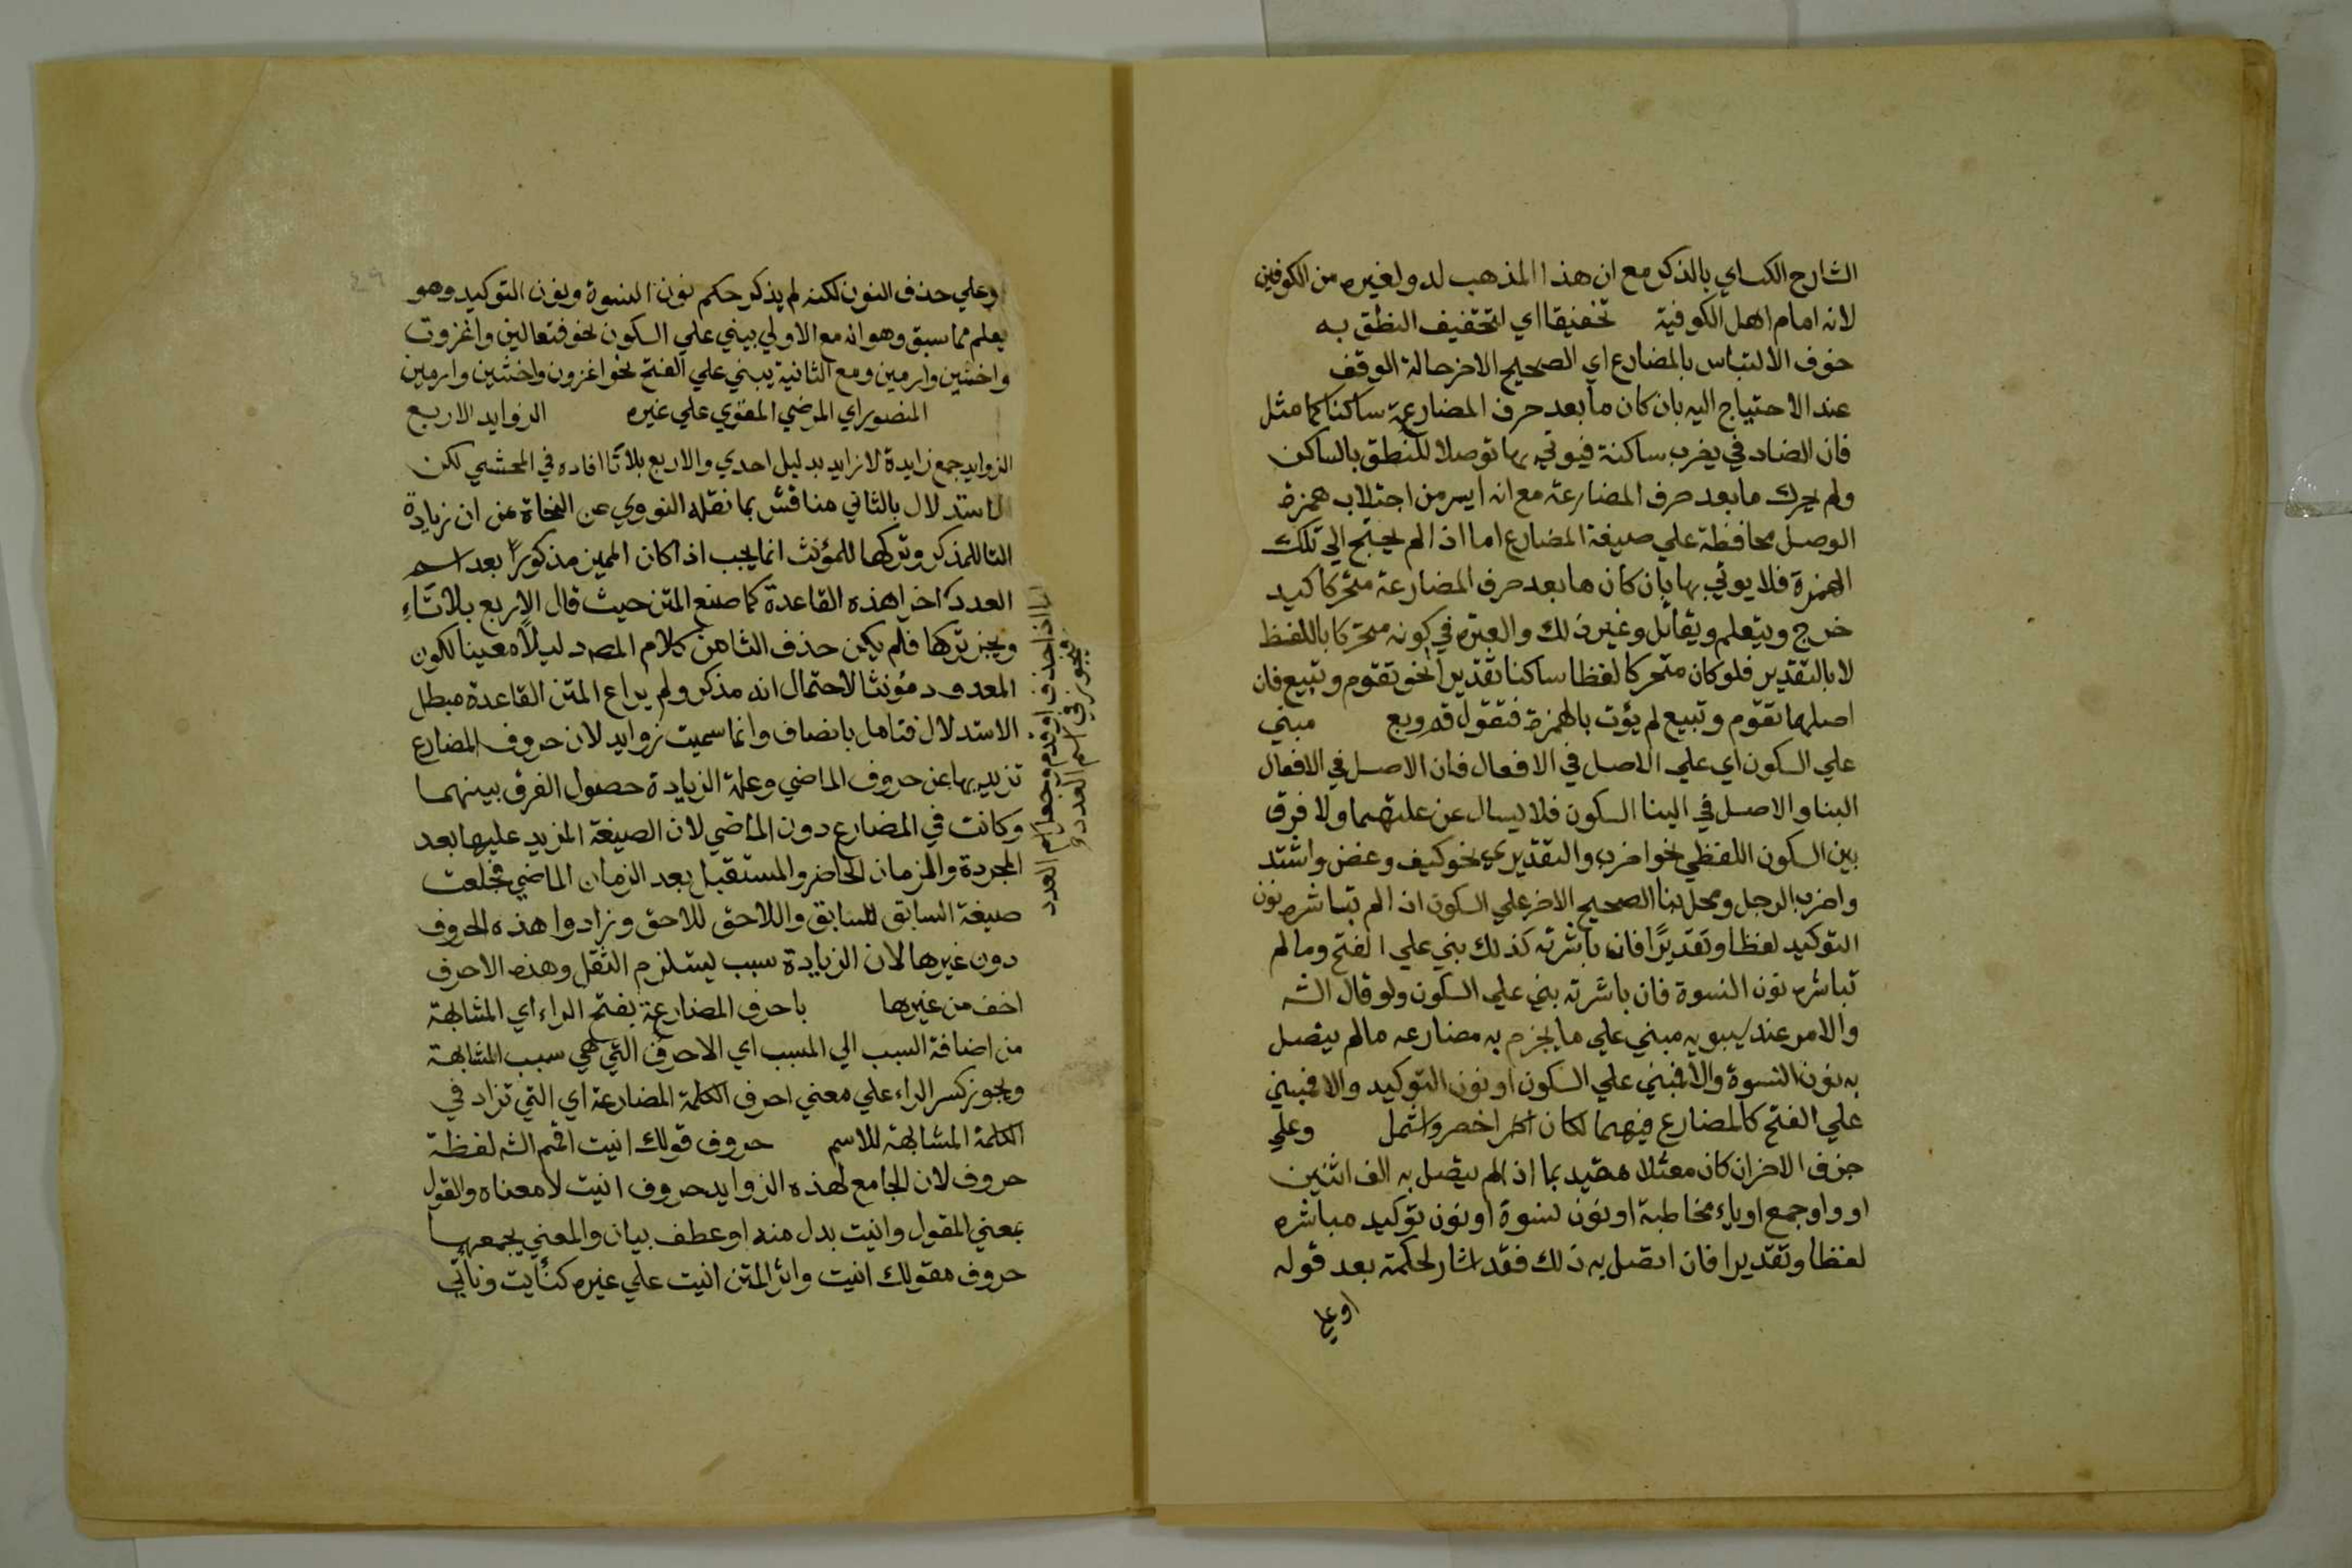 الشارح الكساي بالذكر مع ان هذا المذهب له ولغيره من الكوفين
لانه امام اهل الكوفية تخفيفا اي لتحقيف النطق به
خوف الالتباس بالمضارع اي الصحيح الاخر حالة الوقف
عند الاحتياج اليه بان كان ما بعد حرف المضارعة ساكنا كما مثل
فان الضاد في يضرب ساكنة فيوتي بها توصلا للنطق بالساكن
ولم يحرك ما بعد حرف المضارعة مع انه ايسر من اجتلاب همزة
الوصل محافظة علي صيغة المضارع اما اذا لم يحتج الي تلك
الهمزة فلا يوتي بها بان كان ما بعد حرف المضارعة متحركا كيد
خرج ويتعلم ويقاتل وغير ذلك والعبرة في كونه متحركا باللفظ
لا بالتقدير فلو كان متحركا لفظا ساكنا تقديرا نحو تقوم وتبيع فان
اصلهما تقوم وتبيع لم يؤت بالهمزة فتقول قم وبع مبني
علي السكون اي علي الاصل في الافعال فان الاصل في الافعال
البنا والاصل في البنا السكون فلا يسال عن علتهما ولا فرق
بين السكون اللفظي نحو اضرب والتقديري نحو كيف وعض واشتد
واضرب الرجل ومحل بنا الصحيح الاخر علي السكون اذا لم تباشره نون
التوكيد لفظا وتقديرًا فان باشرته كذلك بني علي الفتح وما لم
تباشره نون النسوة فان باشرته بني علي السكون ولو قال الشه
والامر عند سيبويه مبني علي ما يجزم به مضارعه ما لم يتصل
به نون النسوة والا فبني علي السكون او نون التوكيد والا فبني
علي الفتح كالمضارع فيهما لكان اخصر واشمل وعلي
حذف الاخر ان كان معتلا مقيد بما اذا لم يتصل به الف اثنين
او واو جمع او ياء مخاطبة او نون نسوة او نون توكيد مباشره
لفظا وتقديرا فان اتصل به ذلك فقد اشار لحكمه بعد قوله
او علي
وعلي حذف النون لكنه لم يذكر حكم نون النسوة ونون التوكيد وهو
يعلم مما سبق وهو انه مع الاولي يبني علي السكون نحو فتعالين واغزوت
واخشين وارمين ومع الثانية يبني علي الفتح نحو اغزون واخشين وارمين
المنصور اي المرضي المقوي علي غيره الزوايد الاربع
الزوايد جمع زايدة لا زايد بدليل احدي والاربع بلا تا افاده في المحشي لكن
الاستدلال بالثاني مناقش بما نقله النووي عن النحاة من ان زيادة
التا للمذكر وتركها للمؤنث انما يجب اذا كان المميز مذكورًا بعد اسم
العدد اخر اهذه القاعدة كما صنع المتن حيث قال الاربع بلا تاء
ويجز تركها فلم يكن حذف التا من كلام المصه دليلا معينا لكون
المعدود مؤنثا لاحتمال انه مذكر ولم يراع المتن القاعدة مبطل
الاستدلال فتامل بانصاف وانما سميت زوايد لان حروف المضارع
تزيد بها عن حروف الماضي وعلة الزيادة حصول الفرق بينهما
وكانت في المضارع دون الماضي لان الصيغة المزيد عليها بعد
المجردة والزمان الحاضر والمستقبل بعد الزمان الماضي فجعلت
صيغة السابق للسابق واللاحق للاحق وزادوا هذه الحروف
دون غيرها لان الزيادة سبب ليستلزم الثقل وهذه الاحرف
اخف من غيرها باحرف المضارعة بفتح الراء اي المشابهة
من اضافة السبب الي المسبب اي الاحرف التي هي سبب المشابهة
ويجوز كسر الراء علي معني احرف الكلمة المضارعة اي التي تزاد في
الكلمة المشابهة للاسم حروف قولك انيت اقحم الشه لفظة
حروف لان الجامع لهذه الزوايد حروف انيت لا معناه والقول
بمعني المقول وانيت بدل منه او عطف بيان والمعني يجمعها
حروف مقولك انيت واثر المتن انيت علي غيره كنأيت ونأتي
اما اذا حذف او قدم وجعل اسم العدد
فيجوز في اسم العدد